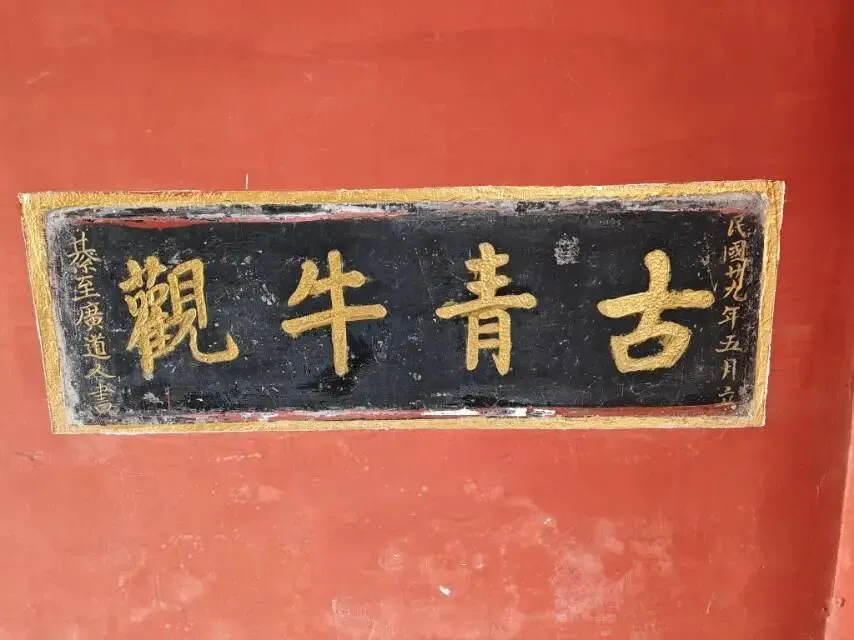 民國廿九年五月立
古青牛觀
綦至廣道人書